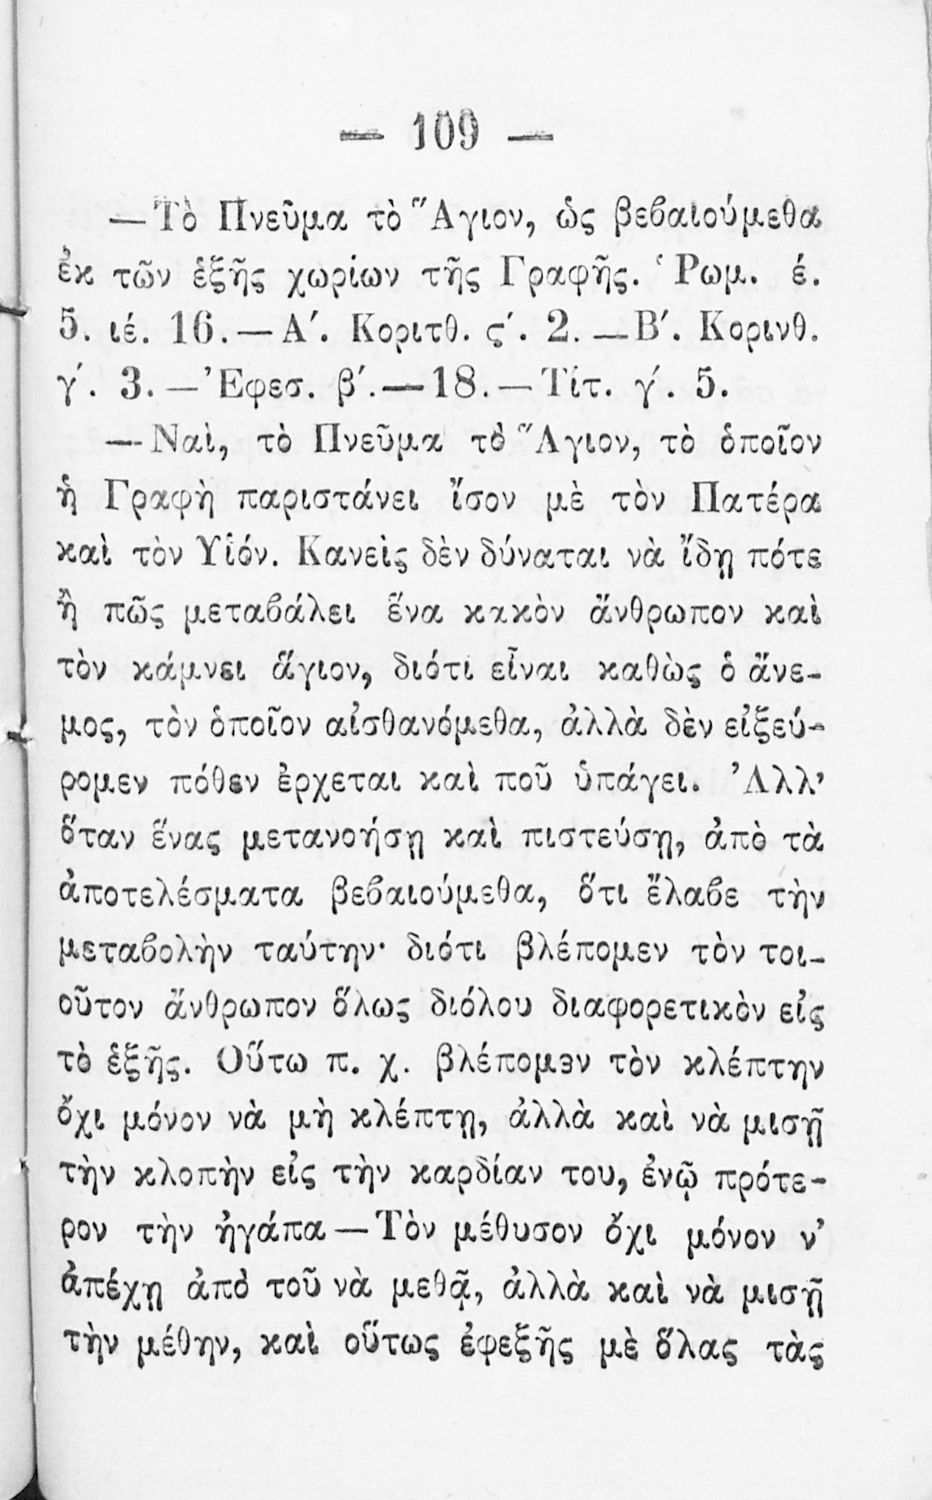 — 109 —
—Τὸ Πνεῦμα τὸ Ἅγιον, ὡς βεβαιούμεθα
ἐκ τῶν ἑξῆς χωρίων τῆς Γραφῆς. Ῥωμ. έ.
5. ιέ. 16.—Α΄. Κοριτθ. ς΄. 2.—Β΄. Κορινθ.
γ΄. 3.—Ἐφεσ. β΄.—18.—Τίτ. γ΄. 5.
—Ναὶ, τὸ Πνεῦμα τὸ Ἅγιον, τὸ ὁποῖον
ἡ Γραφὴ παριστάνει ἴσον μὲ τὸν Πατέρα
καὶ τὸν Υἱόν. Κανεὶς δὲν δύναται νὰ ἴδῃ πότε
ἢ πῶς μεταβάλει ἕνα κακὸν ἄνθρωπον καὶ
τὸν κάμνει ἅγιον, διότι εἶναι καθὼς ὁ ἄνε-
μος, τὸν ὁποῖον αἰσθανόμεθα, ἀλλὰ δὲν εἰξεύ-
ρομεν πόθεν ἐρχεται καὶ ποῦ ὑπάγει. Ἀλλ’
ὅταν ἕνας μετανοήσῃ καὶ πιστεύσῃ, ἀπὸ τὰ
ἀποτελέσματα βεβαιούμεθα, ὅτι ἔλαβε τὴν
μεταβολὴν ταύτην· διότι βλέπομεν τὸν τοι-
οῦτον ἄνθρωπον ὅλως διόλου διαφορετικὸν εἰς
τὸ ἑξῆς. Οὕτω π. χ. βλέπομεν τὸν κλέπτην
ὄχι μόνον νὰ μὴ κλέπτῃ, ἀλλὰ καὶ νὰ μισῇ
τὴν κλοπὴν εἰς τὴν καρδίαν του, ἐνῷ πρότε-
ρον τὴν ἠγάπα—Τὸν μέθυσον ὄχι μόνον ν’
ἀπέχῃ ἀπὸ τοῦ νὰ μεθᾷ, ἀλλὰ καὶ νὰ μισῇ
τὴν μέθην, καὶ οὕτως ἐφεξῆς μὲ ὅλας τὰς